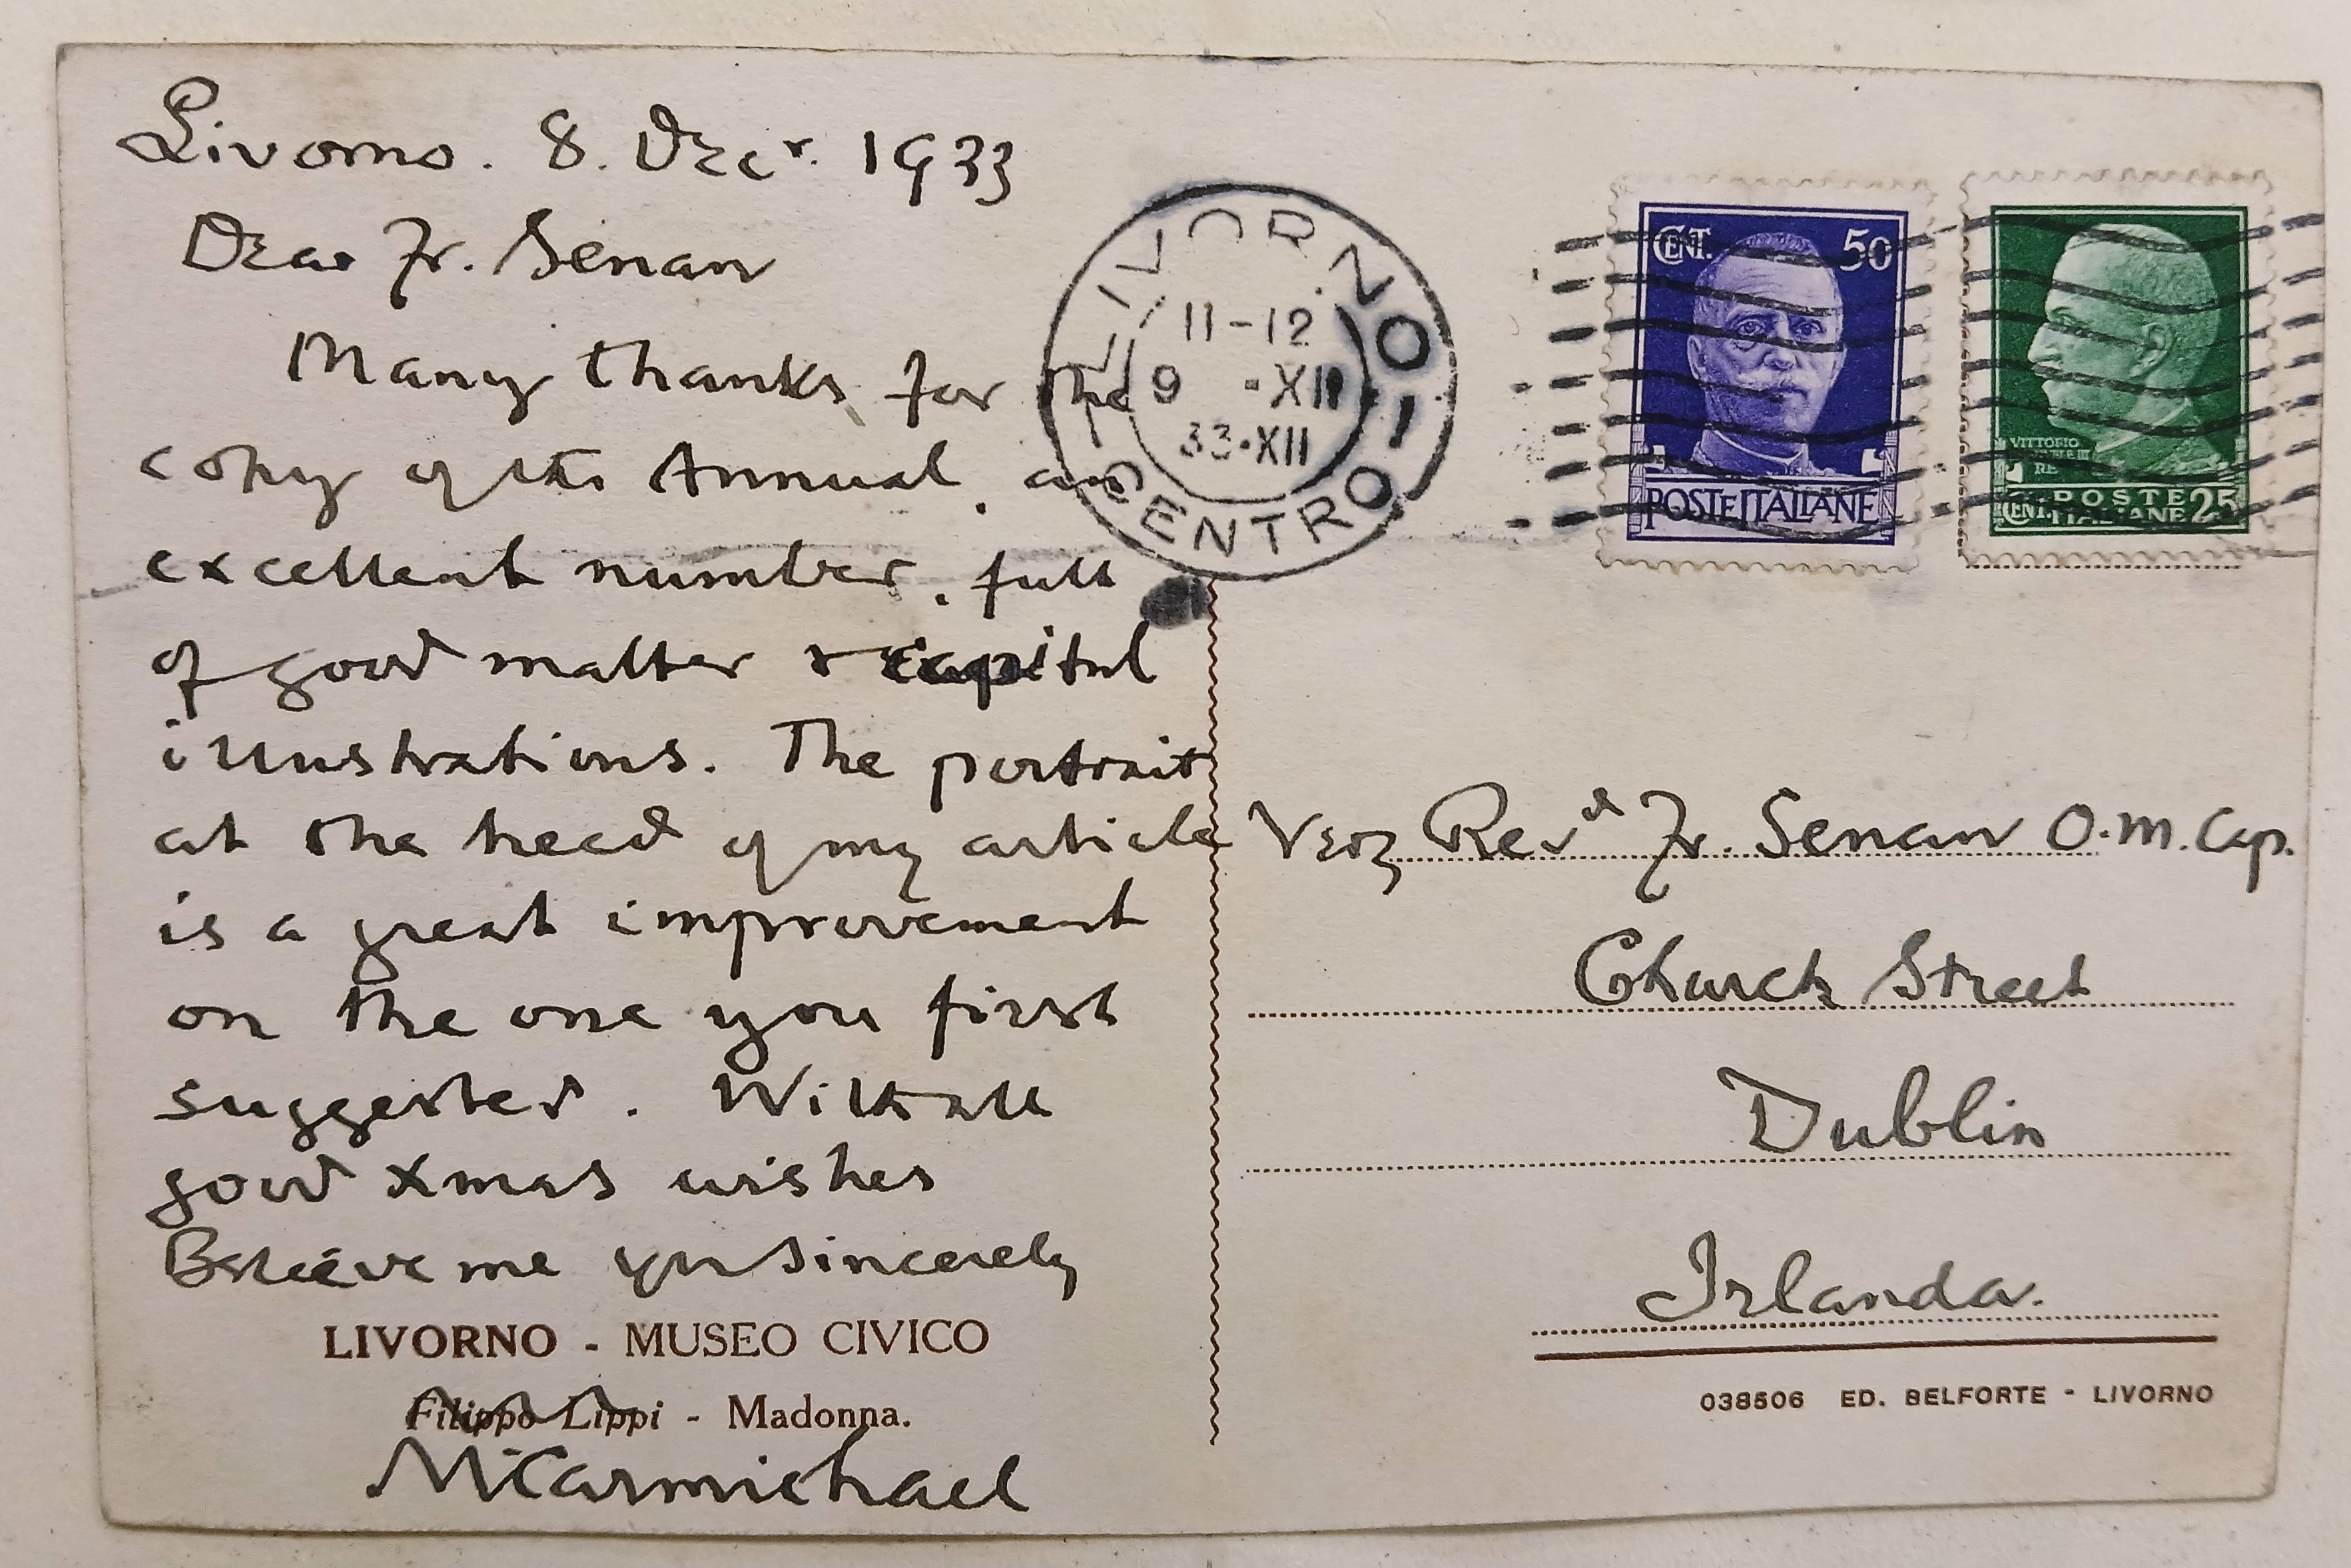 Livorno. 8. Decr. 1933
Dear Fr. Senan
Many thanks for the
copy of the Annual, an
excellent number, full
of good matter & capital
illustrations. The portrait
at the head of my article
is a great improvement
on the one you first
suggested. With all
good Xmas wishes
Believe me yrs sincerely
LIVORNO - MUSEO CIVICO
Filippo Lippi - Madonna.
MCarmichael
LIVORNO
11-12
9 -XII
33·XII
CENTRO
CENT. 50
POSTE ITALIANE
VITTORIO
RE
CENT. POSTE 25
ITALIANE
Very Revd Fr. Senan O.M.Cap.
Church Street
Dublin
Irlanda.
038506 ED. BELFORTE - LIVORNO